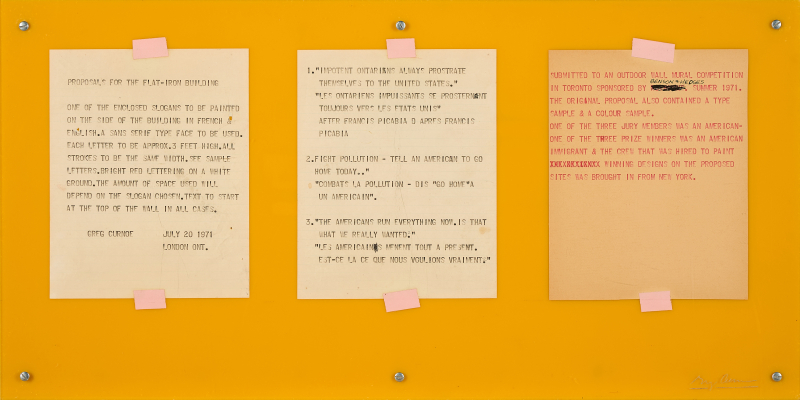 PROPOSALS FOR THE FLAT-IRON BUILDING
ONE OF THE ENCLOSED SLOGANS TO BE PAINTED
ON THE SIDE OF THE BUILDING IN FRENCH &
ENGLISH.A SANS SERIF TYPE FACE TO BE USED.
EACH LETTER TO BE APPROX.3 FEET HIGH.ALL
STROKES TO BE THE SAME WIDTH.SEE SAMPLE
LETTERS.BRIGHT RED LETTERING ON A WHITE
GROUND.THE AMOUNT OF SPACE USED WILL
DEPEND ON THE SLOGAN CHOSEN.TEXT TO START
AT THE TOP OF THE WALL IN ALL CASES.
GREG CURNOE JULY 20 1971
LONDON ONT.
1."IMPOTENT ONTARIANS ALWAYS PROSTRATE
THEMSELVES TO THE UNITED STATES."
"LES ONTARIENS IMPUISSANTS SE PROSTERNENT
TOUJOURS VERS LES ETATS UNIS"
AFTER FRANCIS PICABIA D APRES FRANCIS
PICABIA
2.FIGHT POLLUTION - TELL AN AMERICAN TO GO
HOME TODAY.."
"COMBATS LA POLLUTION - DIS "GO HOME"A
UN AMERICAIN".
3."THE AMERICANS RUN EVERYTHING NOW.IS THAT
WHAT WE REALLY WANTED."
"LES AMERICAINS MENENT TOUT A PRESENT.
EST-CE LA CE QUE NOUS VOULIONS VRAIMENT."
SUBMITTED TO AN OUTDOOR WALL MURAL COMPETITION
BENSON & HEDGES
IN TORONTO SPONSORED BY SUMMER 1971.
THE ORIGINAL PROPOSAL ALSO CONTAINED A TYPE
SAMPLE & A COLOUR SAMPLE.
ONE OF THE THREE JURY MEMBERS WAS AN AMERICAN-
ONE OF THE THREE PRIZE WINNERS WAS AN AMERICAN
IMMIGRANT & THE CREW THAT WAS HIRED TO PAINT
WINNING DESIGNS ON THE PROPOSED
SITES WAS BROUGHT IN FROM NEW YORK.